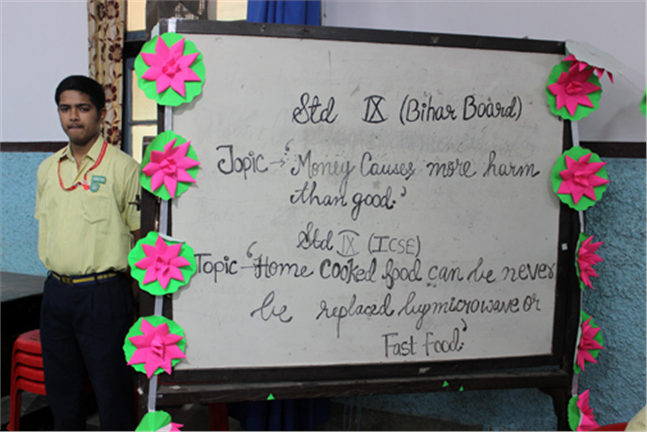 Std IX (Bihar Board)
Topic - 'Money Causes more harm
than good.'
Std IX (ICSE)
Topic - 'Home cooked food can be never
be replaced by microwave or
Fast food.'